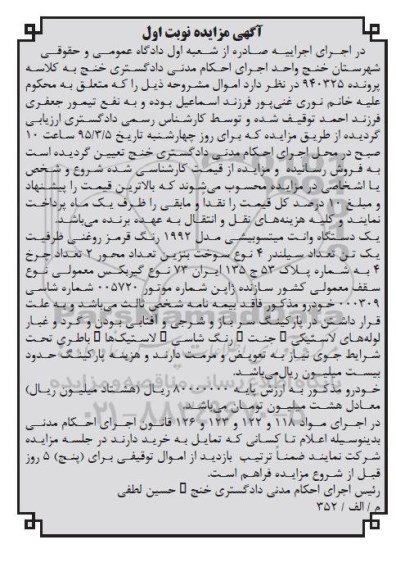 آگهی مزایده نوبت اول
در اجرای اجراییه صادره از شعبه اول دادگاه عمومی و حقوقی
شهرستان خنج واحد اجرای احکام مدنی دادگستری خنج به کلاسه
پرونده ۹۴۰۳۲۵ در نظر دارد اموال مشروحه ذیل را که متعلق به محکوم
علیه خانم نوری غنی‌پور فرزند اسماعیل بوده و به نفع تیمور جعفری
فرزند احمد توقیف شده و توسط کارشناس رسمی دادگستری ارزیابی
گردیده از طریق مزایده که برای روز چهارشنبه تاریخ ۹۵/۳/۵ ساعت ۱۰
صبح در محل اجرای احکام مدنی دادگستری خنج تعیین گردیده است
به فروش رسانیده و مزایده از قیمت کارشناسی شده شروع و شخص
یا اشخاصی در مزایده محسوب می‌شوند که بالاترین قیمت را پیشنهاد
و مبلغ ۱۰ درصد کل قیمت را نقدا و مابقی را ظرف یک ماه پرداخت
نمایند و کلیه هزینه‌های نقل و انتقال به عهده برنده می‌باشد.
یک دستگاه وانت میتسوبیسی مدل ۱۹۹۲ رنگ قرمز روغنی ظرفیت
یک تن تعداد سیلندر ۴ نوع سوخت بنزین تعداد محور ۲ تعداد چرخ
۴ به شماره پلاک ۵۳ ج ۱۳۵ ایران ۷۳ نوع گیربکس معمولی نوع
سقف معمولی کشور سازنده ژاپن شماره موتور ۰۰۵۷۲۰ شماره شاسی
۰۰۰۳۰۹ خودرو مذکور فاقد بیمه نامه شخص ثالث می‌باشد و به علت
قرار داشتن در پارکینگ سر باز و شرجی و آفتابی بودن و گرد و غبار
لوله‌های لاستیکی، جنت، رنگ شاسی، لاستیک‌ها، باطری تحت
شرایط جوی نیاز به تعویض و مرمت دارند و هزینه پارکینگ حدود
بیست میلیون ریال می‌باشد.
خودرو مذکور به ارزش پایه ۸۰۰۰۰۰۰۰ ریال (هشتاد میلیون ریال)
معادل هشت میلیون تومان می‌باشد
در اجرای مواد ۱۱۸ و ۱۲۲ و ۱۲۳ و ۱۲۶ قانون اجرای احکام مدنی
بدینوسیله اعلام تا کسانی که تمایل به خرید دارند در جلسه مزایده
شرکت نمایند ضمناً ترتیب بازدید از اموال توقیفی برای (پنج) ۵ روز
قبل از شروع مزایده فراهم است.
رئیس اجرای احکام مدنی دادگستری خنج، حسین لطفی
م / الف / ۳۵۲